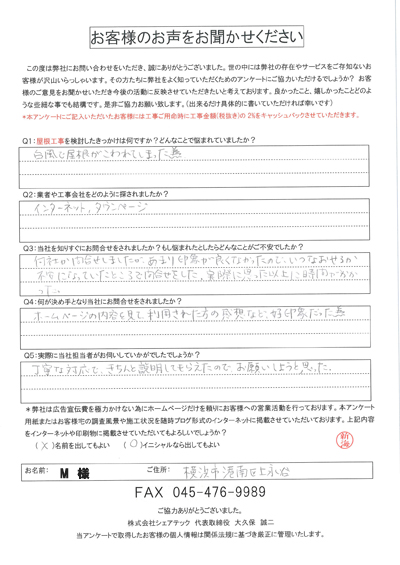 お客様のお声をお聞かせください
この度は弊社にお問い合わせをいただき、誠にありがとうございました。世の中には弊社の存在やサービスをご存知ないお
客様が沢山いらっしゃいます。その方たちに弊社をよく知っていただくためのアンケートにご協力いただけるでしょうか? お客
様のご意見をお聞かせいただき今後の活動に反映させていただきたいと考えております。良かったこと、嬉しかったことどのよ
うな些細な事でも結構です。是非ご協力お願い致します。(出来るだけ具体的に書いていただければ幸いです)
*本アンケートにご記入いただいたお客様には工事ご用命時に工事金額(税抜き)の2%をキャッシュバックさせていただきます。
Q1:屋根工事を検討したきっかけは何ですか?どんなことで悩まれていましたか?
台風で屋根がこわれてしまった為
Q2:業者や工事会社をどのように探されましたか?
インターネット、タウンページ
Q3:当社を知りすぐにお問合せをされましたか?もし悩まれたとしたらどんなことがご不安でしたか?
何社か問合せしましたが、あまり印象が良くなかったので、いつなおせるか
不安になっていたところで問合せをした。実際に思った以上に時間がかか
った。
Q4:何が決め手となり当社にお問合せをされましたか?
ホームページの内容を見て、利用された方の感想など、好印象だった為
Q5:実際に当社担当者がお伺いしていかがでしたでしょうか?
丁寧な対応で、きちんと説明してもらえたので お願いしようと思った。
*弊社は広告宣伝費を極力かけない為にホームページだけを頼りにお客様への営業活動を行っております。本アンケート
用紙またはお客様宅の調査風景や施工状況を随時ブログ形式のインターネットに掲載させていただいております。上記内容
をインターネットや印刷物に掲載させていただいてもよろしいでしょうか?
(×)名前を出してもよい (○)イニシャルなら出してもよい
お名前: M 様 ご住所: 横浜市港南区上永谷
FAX 045-476-9989
ご協力ありがとうございました。
株式会社シェアテック 代表取締役 大久保 誠二
当アンケートで取得したお客様の個人情報は関係法規に基づき厳正に管理いたします。